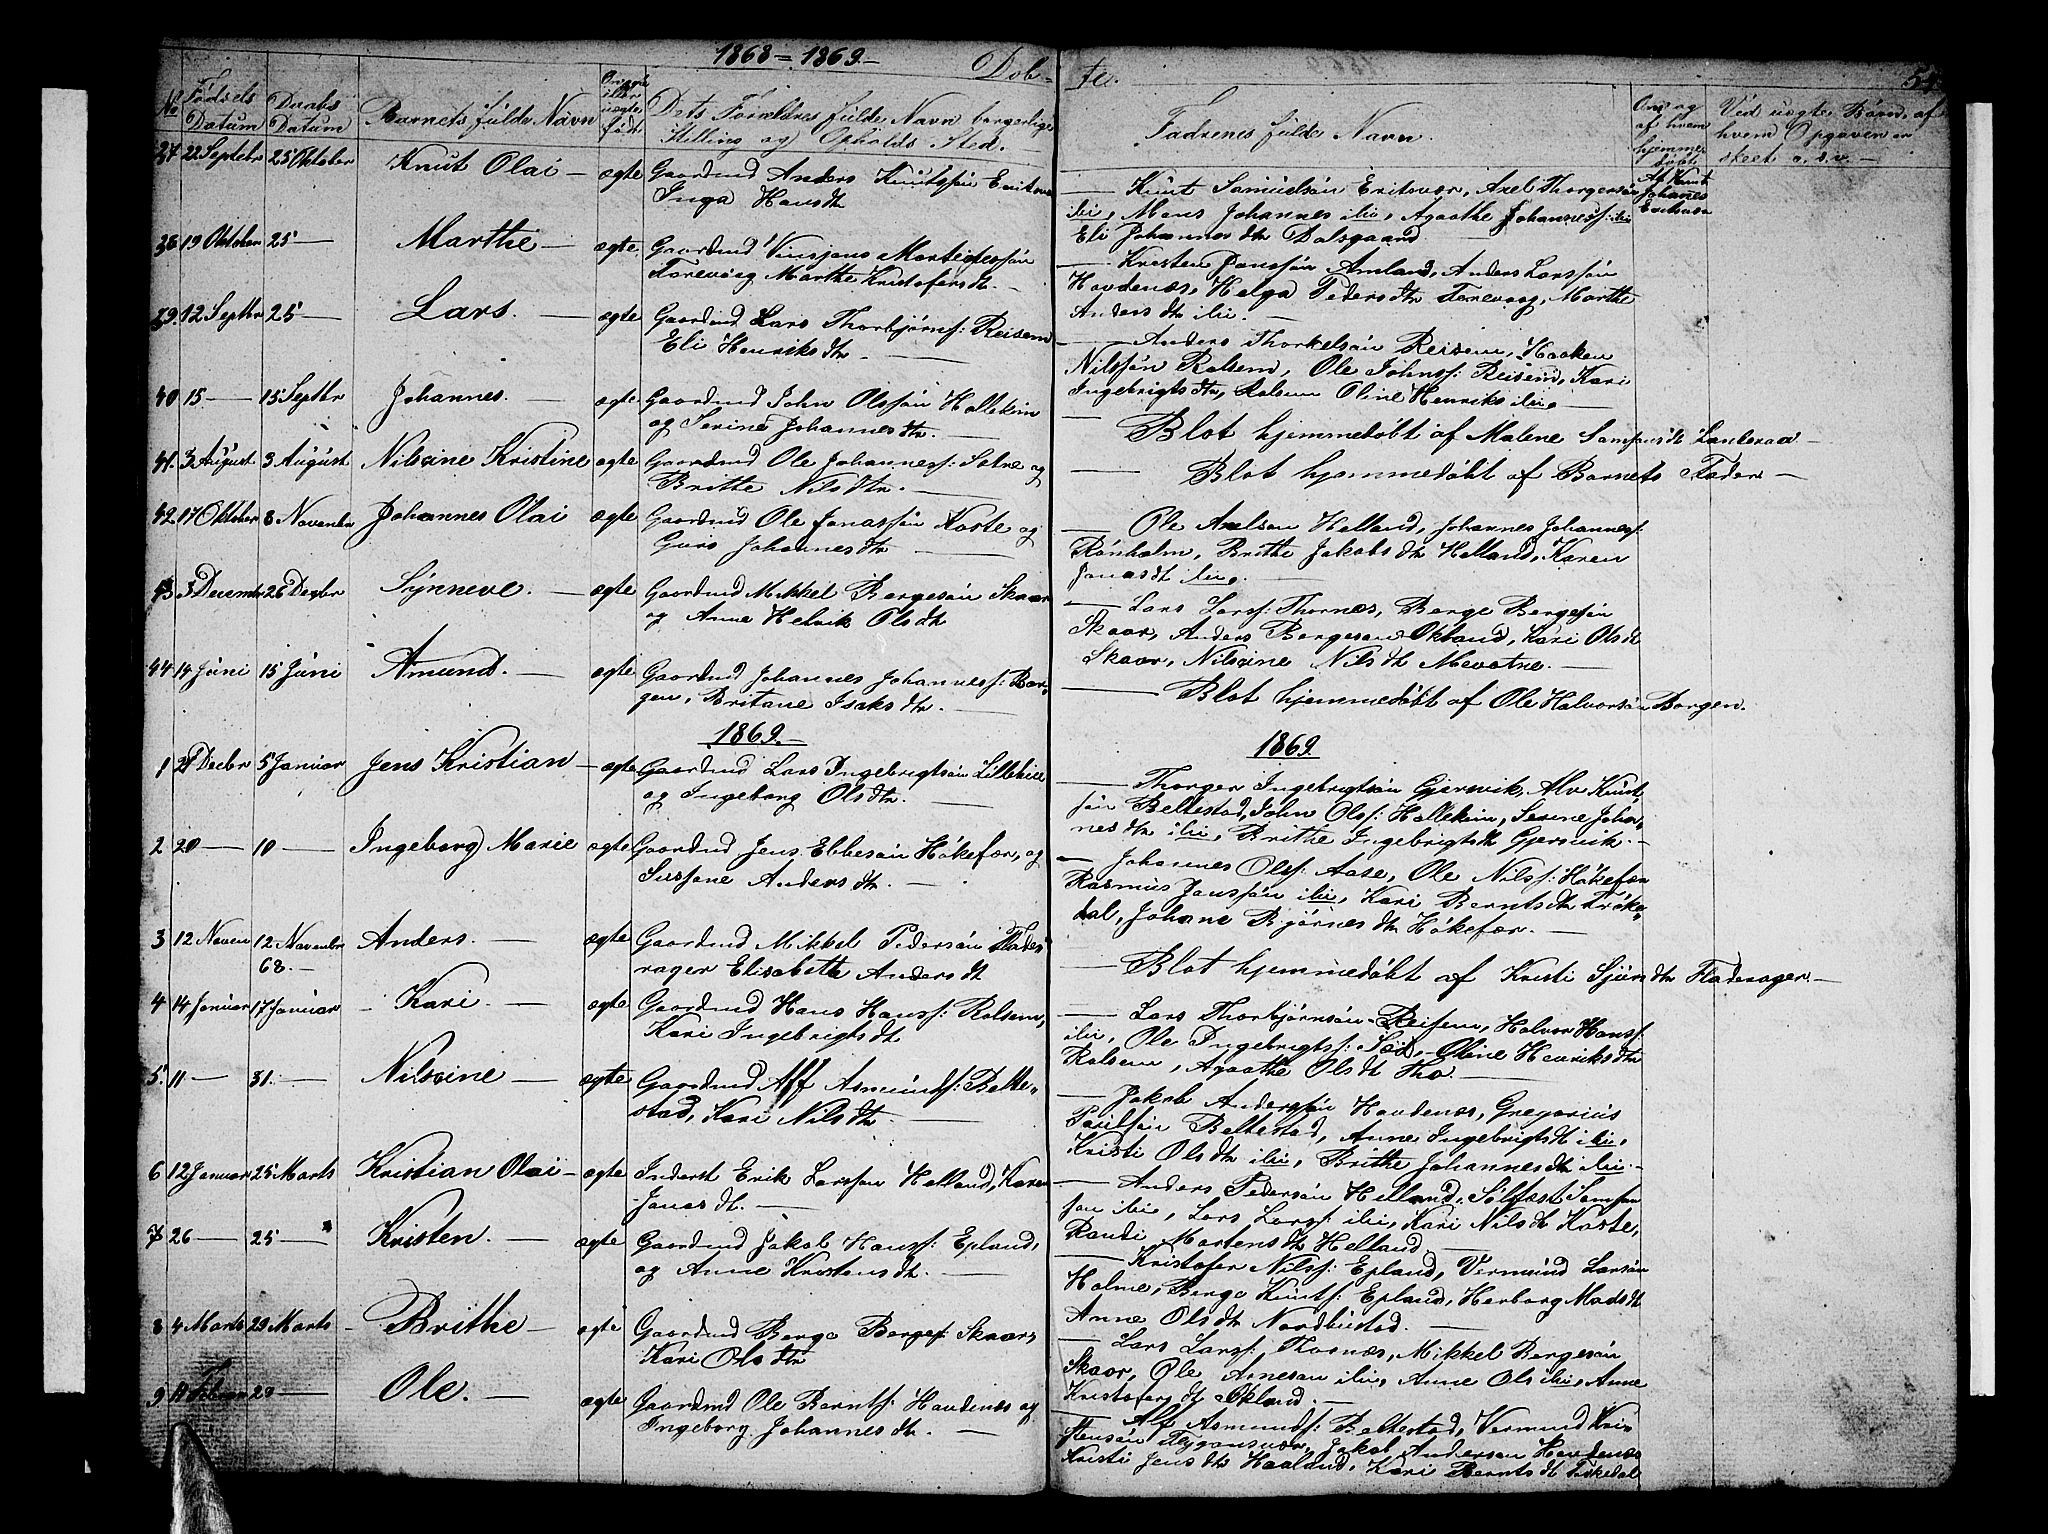 1868 = 1869 –
Døb- te.
54.
No
Fødsels Datum
Daabs Datum
Barnets fulde Navn
Om ægte eller uægte født
Dets Forældres fulde Navn borgerlige Stilling og Opholds Sted.
Faddrenes fulde Navn.
Om og af hvem hjemme døbt
Ved uægte Børn, af hvem Opgaven er skeet o. s. v. –
37 22 Septebr 25 Oktober Knut Olai – ægte Gaardmd Anders Knutsøn
Inga Hansdtr
– Knut Samuelsøn Eriksvær, Axel Thorgersøn
ibi, Mons Johannes ibi, Agaathe Johannesf: ibi
Eli Johannesdtr Dalsgaard –
Af Knut
Johanes
38 19 Oktober 25 – Marthe – ægte Gaardmd Vinsjans
Marthe Kristofersdt. –
– Kristen Jansøn Amland, Anders Larssøn
Havdenæs, Helga Pedersdtr Torevaag, Marthe
Andersdtr ibi. –
39. 12 Septbr 25 – Lars. – ægte Gaardmd Lars Thorbjørnf: Reisem
Eli Henriksdtr. –
– Anders Thorkelsøn Reisem, Haaken
Nilssøn Ralsem, Ole Johnsf: Reisem, Kari
Ingebrigtsdtr, Ralsem Oline Henriks ibi. –
40 15 – 15 Septbr Johannes. – ægte Gaardmd John Olssøn Hallekim
og Serine Johannesdtr. –
– Blot hjemmedøbt af Malene –
41. 3 August 3 August Nilsine Kristine ægte Gaardmd Ole Johannesf: Sætre og
Britte Nilsdtr. –
– Blot hjemmedøbt af Barnets Fader –
42. 17 Oktober 8 Novembr Johannes Olai ægte Gaardmd Ole Jonassøn Kaste og
Guro Johannesdtr –
– Ole Axelsen Helland, Johannes Johannesf:
Rønholm, Brithe Jakobsdtr Helland, Karen
Jonasdt ibi. –
43 3 Decembr 26 Decbr Synneve. – ægte Gaardmd Mikkel Bergesøn Skaar
og Anne Helvik Olsdtr
– Lars Larsf: Thornæs, Berge Bergesøn
Skaar, Anders Bergesen Økland, Kari Olsdt
Skaar, Nilsine Nilsdtr Mevatne. –
44. 14 Juni 15 Juni Amund. – ægte Gaardmd Johannes Johannesf: Bor-
gen, Britane Isaksdtr. –
– Blot hjemmedøbt af Ole Halvorsøn Borgen.
1869. –
1869
1 28 Decbr 5 Januar Jens Kristian – ægte Gaardmd Lars Ingebrigtsøn
og Ingeborg Olsdtr. –
– Thorger Ingebrigtsøn Gjersvik, Alv Knut-
søn Beltestad, John Olsf: Hallekim, Serine Johan-
nesdtr ibi, Brithe Ingebrigtsdt Gjersvik. –
2 20 – 10 – Ingeborg Marie ægte Gaardmd Jens Ebbesøn Høkefær, og
Andersdtr. –
– Johannes Olsf: Aase, Ole Nilsf: Høkefær
Rasmus Janssøn ibi, Kari Berntsdtr Trøke-
dal, Johane Bjørnesdtr Høkefær. –
3 12 Noven 12 Novembr 68. – Anders. – ægte Gaardmd Mikkel Pedersøn Flades-
rager Elisabeth Andersdt
– Blot hjemmedøbt af Kristi Sjursdtr Fladesrager. –
4 14 Januar 17 Januar – Kari – ægte Gaardmd Hans Hansf: Ralsem,
Kari Ingebrigtsdt
– Lars Thorbjørnsøn Reisem, Halvor Hansf:
ibi, Ole Ingebrigtsf: Oline Henriksdtr
Ralsem, Agaathe Olsdt Tho. –
5. 11 – 31. – Nilsine – ægte Gaardmd Alf Asmundsf: Belte-
stad, Kari Nilsdtr –
– Jakob Anderssøn Havdenæs, Gregorius
Beltestad, Anne Ingebrigtsdt ibi,
Kristi Olsdtr ibi, Brithe Johannesdt ibi. –
6 12 Januar 25 Marts Kristian Olai – ægte Inderst Erik Larssøn Helland, Karen
Jonasdt. –
– Anders Pedersøn Helland, Sølfæst Samson
søn ibi, Lars Larsf: ibi, Kari Nilsdt Kaste,
Randi Mortensdtr Helland. –
7 26 – 25 – Kristen. – ægte Gaardmd Jakob Hansf: Epland,
og Anne Kristensdtr. –
– Kristofer Nilsf: Epland, Vermund Larsøn
Holme, Berge Knutsf: Epland, Herborg Madsdt
Anne Olsdtr Nordbustad. –
8 4 Marts 29 Marts Brithe – ægte Gaardmd Berge Bergesf: Skaar,
Kari Olsdtr
– Lars Larsf: Thornæs, Mikkel Bergesøn
Skaar, Ole Arnesøn ibi, Anne Ols ibi, Anne
Kristofersdt Økland. –
9 11 Februar 29 – Ole. – ægte Gaardmd Ole Berntsf: Havdenæs og
Ingeborg Johannesdtr. –
– Alf Asmundsf: Beltestad, Vermund Kri-
stensøn Flygansvær, Jakob Andersen Havdenæs
Kristi Jensdtr Haaland, Kari Berntsdt Trøkedal